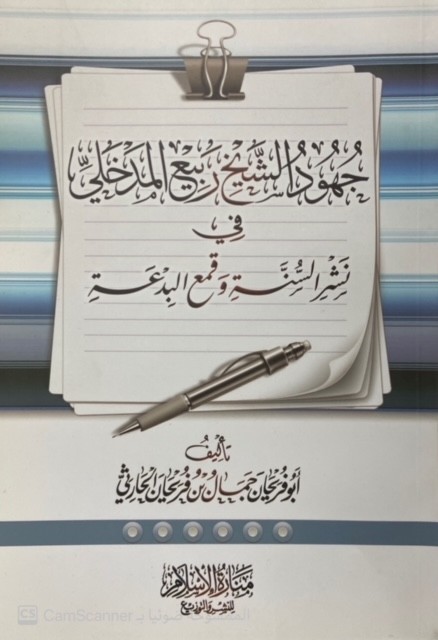 جُهُودُ الشَّيْخِ رَبِيعٍ المَدْخَلِيِّ
فِي
نَشْرِ السُّنَّةِ وَقَمْعِ البِدْعَةِ
تَأْلِيفُ
أَبُو فُرَيْحَانَ جَمَالُ بْنُ فُرَيْحَانَ الْحَارِثِيُّ
مَنَارَةُ الإِسْلَامِ
لِلنَّشْرِ وَالتَّوْزِيعِ
CS CamScanner الممسوحة ضوئيا بـ